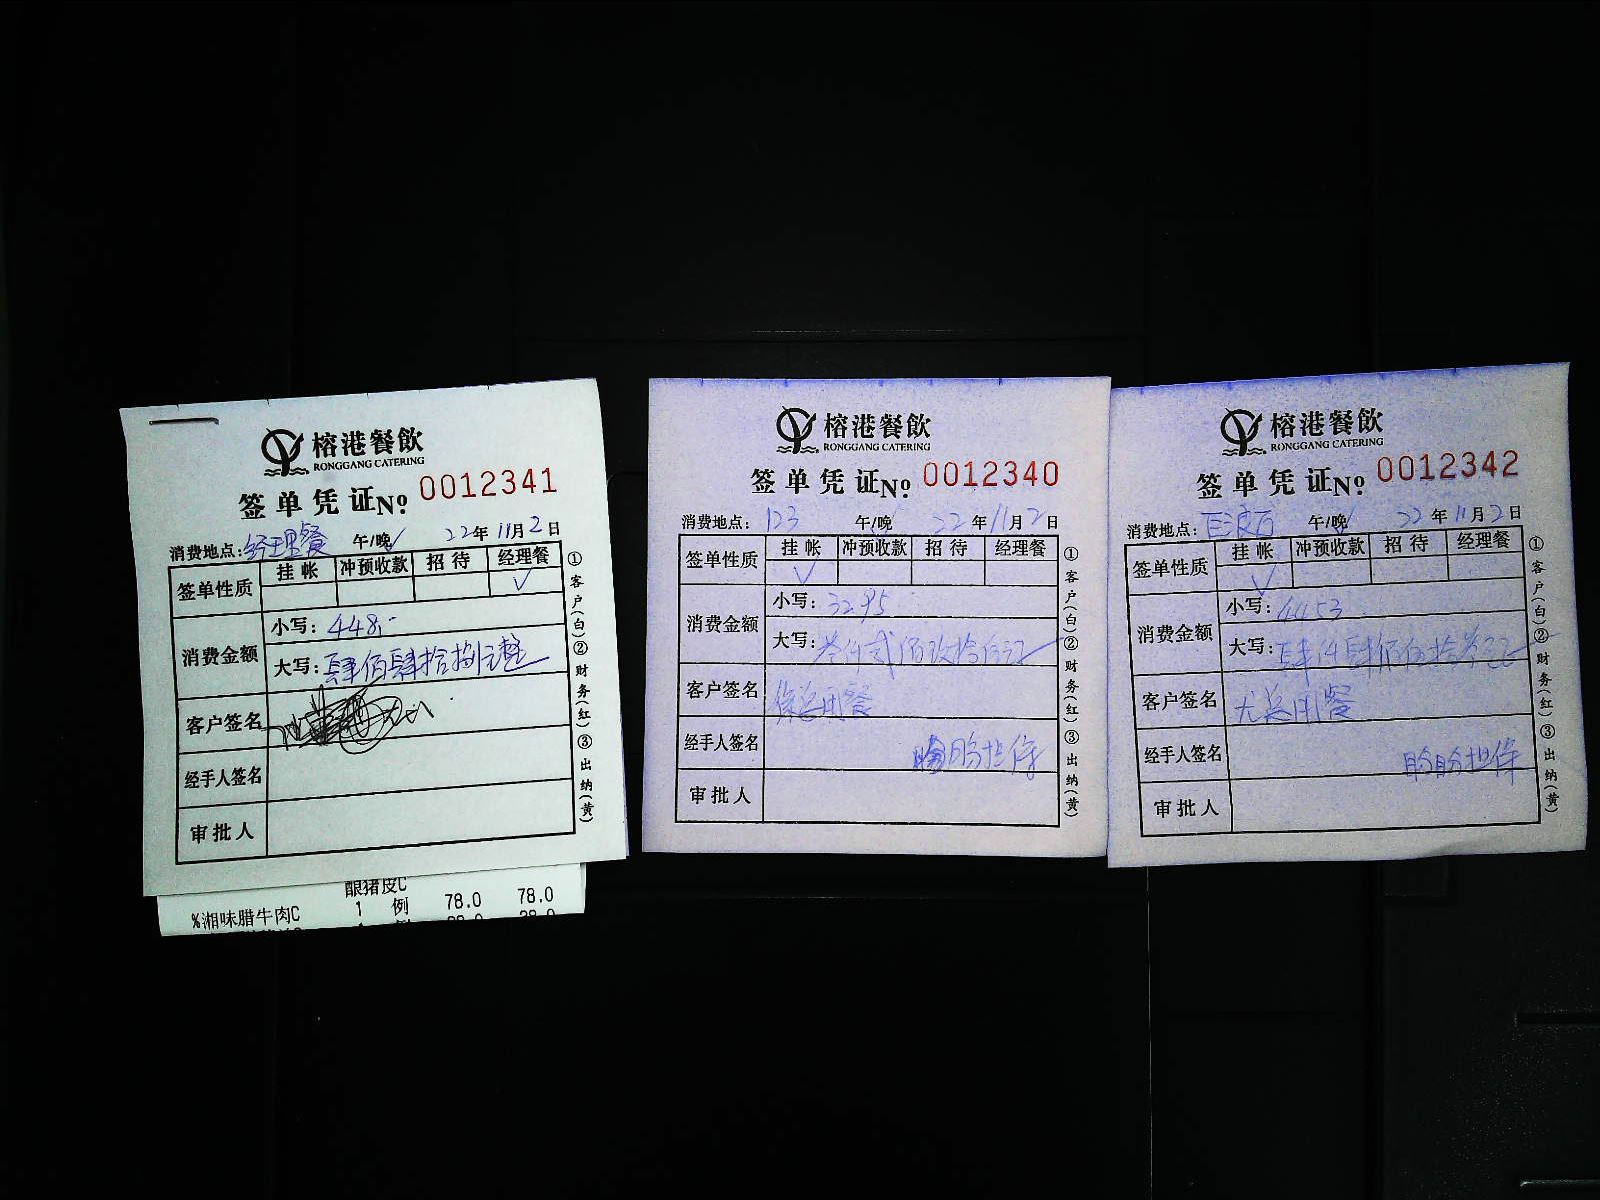 榕港餐飲
RONGGANG CATERING
签单凭证 No. 0012341
消费地点: 经理餐 午/晚✓ 22年11月2日
签单性质 挂帐 冲预收款 招待 经理餐
✓
消费金额
小写: 448.-
大写: 肆佰肆拾捌元整
客户签名
经手人签名
审批人
①客户(白)②财务(红)③出纳(黄)
酿猪皮C
%湘味腊牛肉C 1 例 78.0 78.0
榕港餐飲
RONGGANG CATERING
签单凭证 No. 0012340
消费地点: 123 午/晚✓ 22年11月2日
签单性质 挂帐 冲预收款 招待 经理餐
✓
消费金额
小写: 3295
大写: 叁仟贰佰玖拾伍元
客户签名 徐总用餐
经手人签名 盼盼担保
审批人
①客户(白)②财务(红)③出纳(黄)
榕港餐飲
RONGGANG CATERING
签单凭证 No. 0012342
消费地点: 午/晚✓ 22年11月2日
签单性质 挂帐 冲预收款 招待 经理餐
✓
消费金额
小写: 4453
大写: 肆仟肆佰伍拾叁元
客户签名 尤总用餐
经手人签名 盼盼担保
审批人
①客户(白)②财务(红)③出纳(黄)